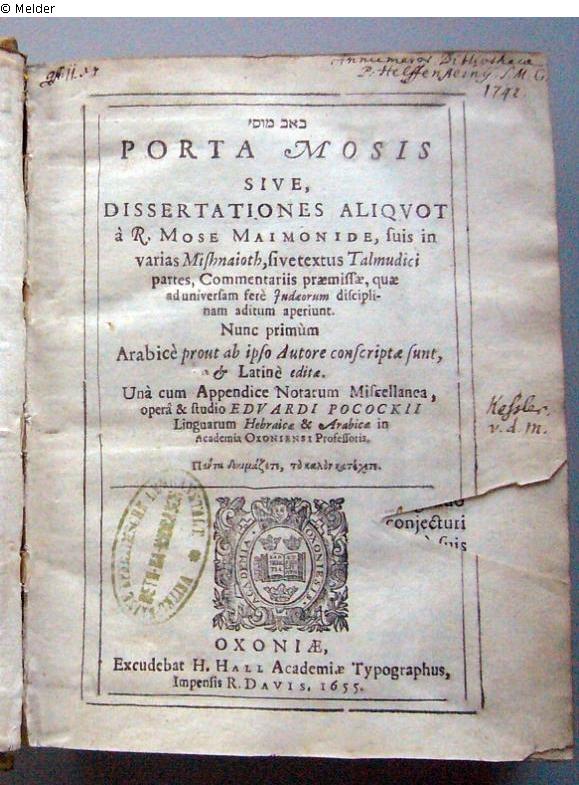 © Melder
1742.
באב מוסי
PORTA MOSIS
SIVE,
DISSERTATIONES ALIQVOT
à R. MOSE MAIMONIDE, suis in
varias Mishnaioth, sive textus Talmudici
partes, Commentariis præmissæ, quæ
ad universam ferè Judæorum discipli-
nam aditum aperiunt.
Nunc primùm
Arabicè prout ab ipso Autore conscriptæ sunt,
& Latinè editæ.
Unà cum Appendice Notarum Miscellanea,
operâ & studio EDVARDI POCOCKII
Linguarum Hebraicæ & Arabicæ in
Academia OXONIENSI Professoris.
Πάντα δοκιμάζετε, τὸ καλὸν κατέχετε.
Kessler.
v. d. m.
conjecturi
suis
ACADEMIA OXONIENSIS
OXONIÆ,
Excudebat H. HALL Academiæ Typographus,
Impensis R. DAVIS, 1655.